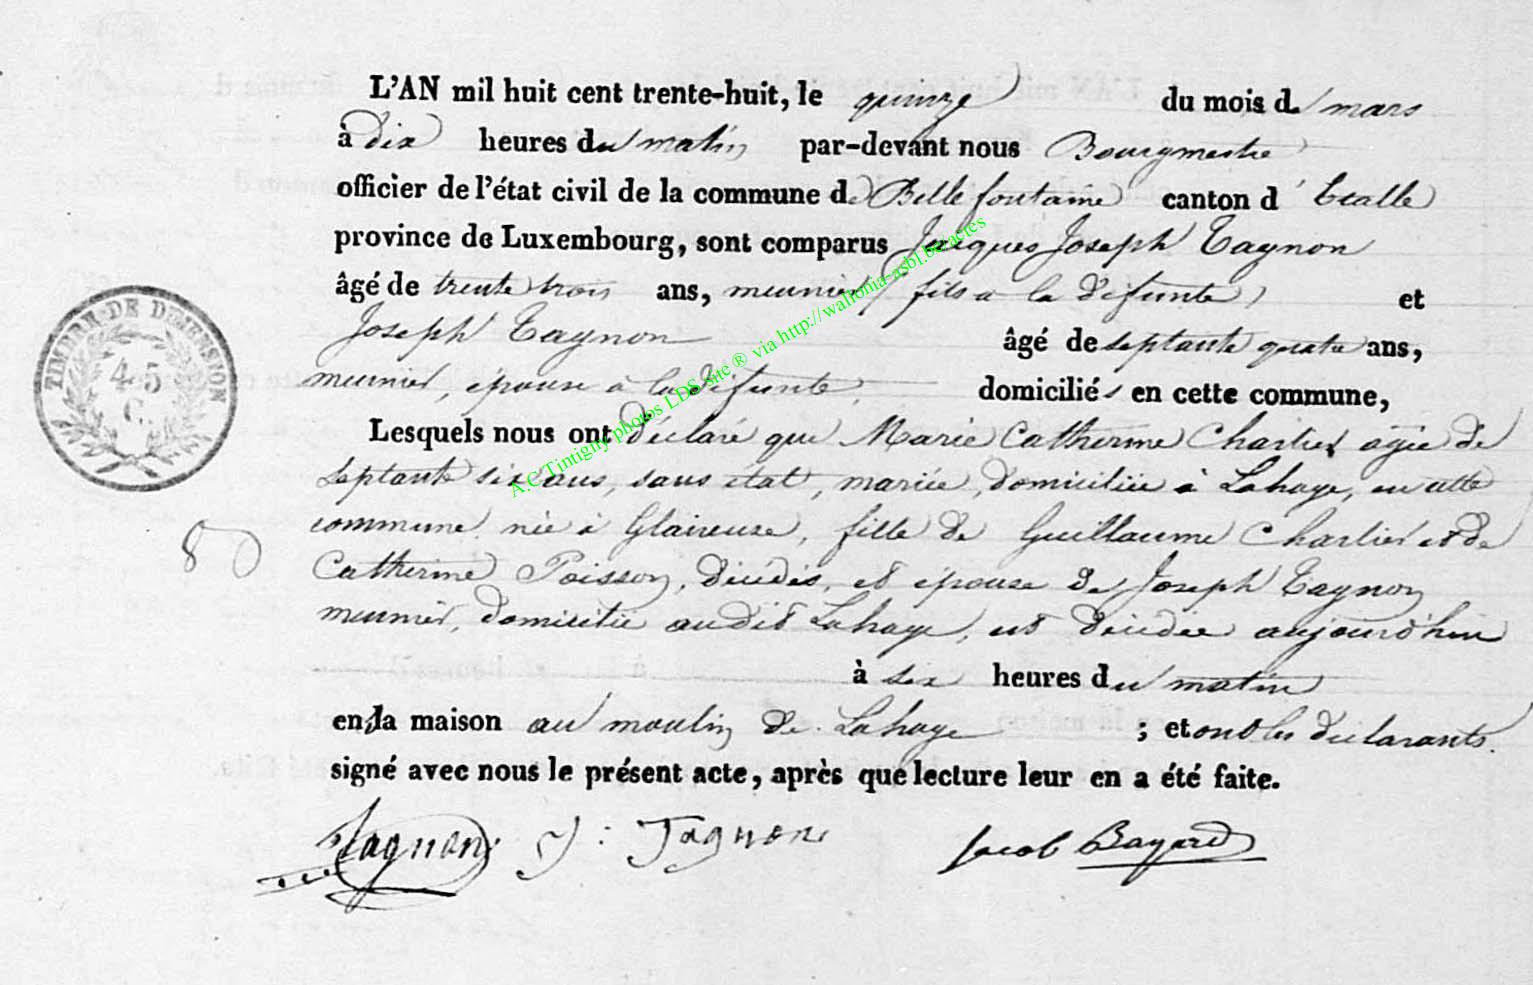 L'AN mil huit cent trente-huit, le quinze du mois de mars
à dix heures du matin par-devant nous Bourgmestre
officier de l'état civil de la commune de Bellefontaine canton d'Etalle
province de Luxembourg, sont comparus Jacques Joseph Tagnon
âgé de trente trois ans, meunier, fils à la défunte, et
Joseph Tagnon âgé de septante quatre ans,
meunier, épouse à la défunte, domiciliés en cette commune,
Lesquels nous ont déclaré que Marie Catherine Charlier âgée de
septante six ans, sans état, mariée, domiciliée à Lahage, en cette
commune née à Glaireuse, fille de Guillaume Charlier et de
Catherine Poisson, décédés, et épouse de Joseph Tagnon
meunier, domicilié audit Lahage, est décédée aujourd'hui
à six heures du matin
en la maison au moulin de Lahage ; et ont les déclarants
signé avec nous le présent acte, après que lecture leur en a été faite.
Tagnon J: Tagnon Jacob Bayard
TIMBRE DE DIMENSION
45
C.
A.C Tintigny photos LDS site ® via http://wallonia-asbl.be/actes